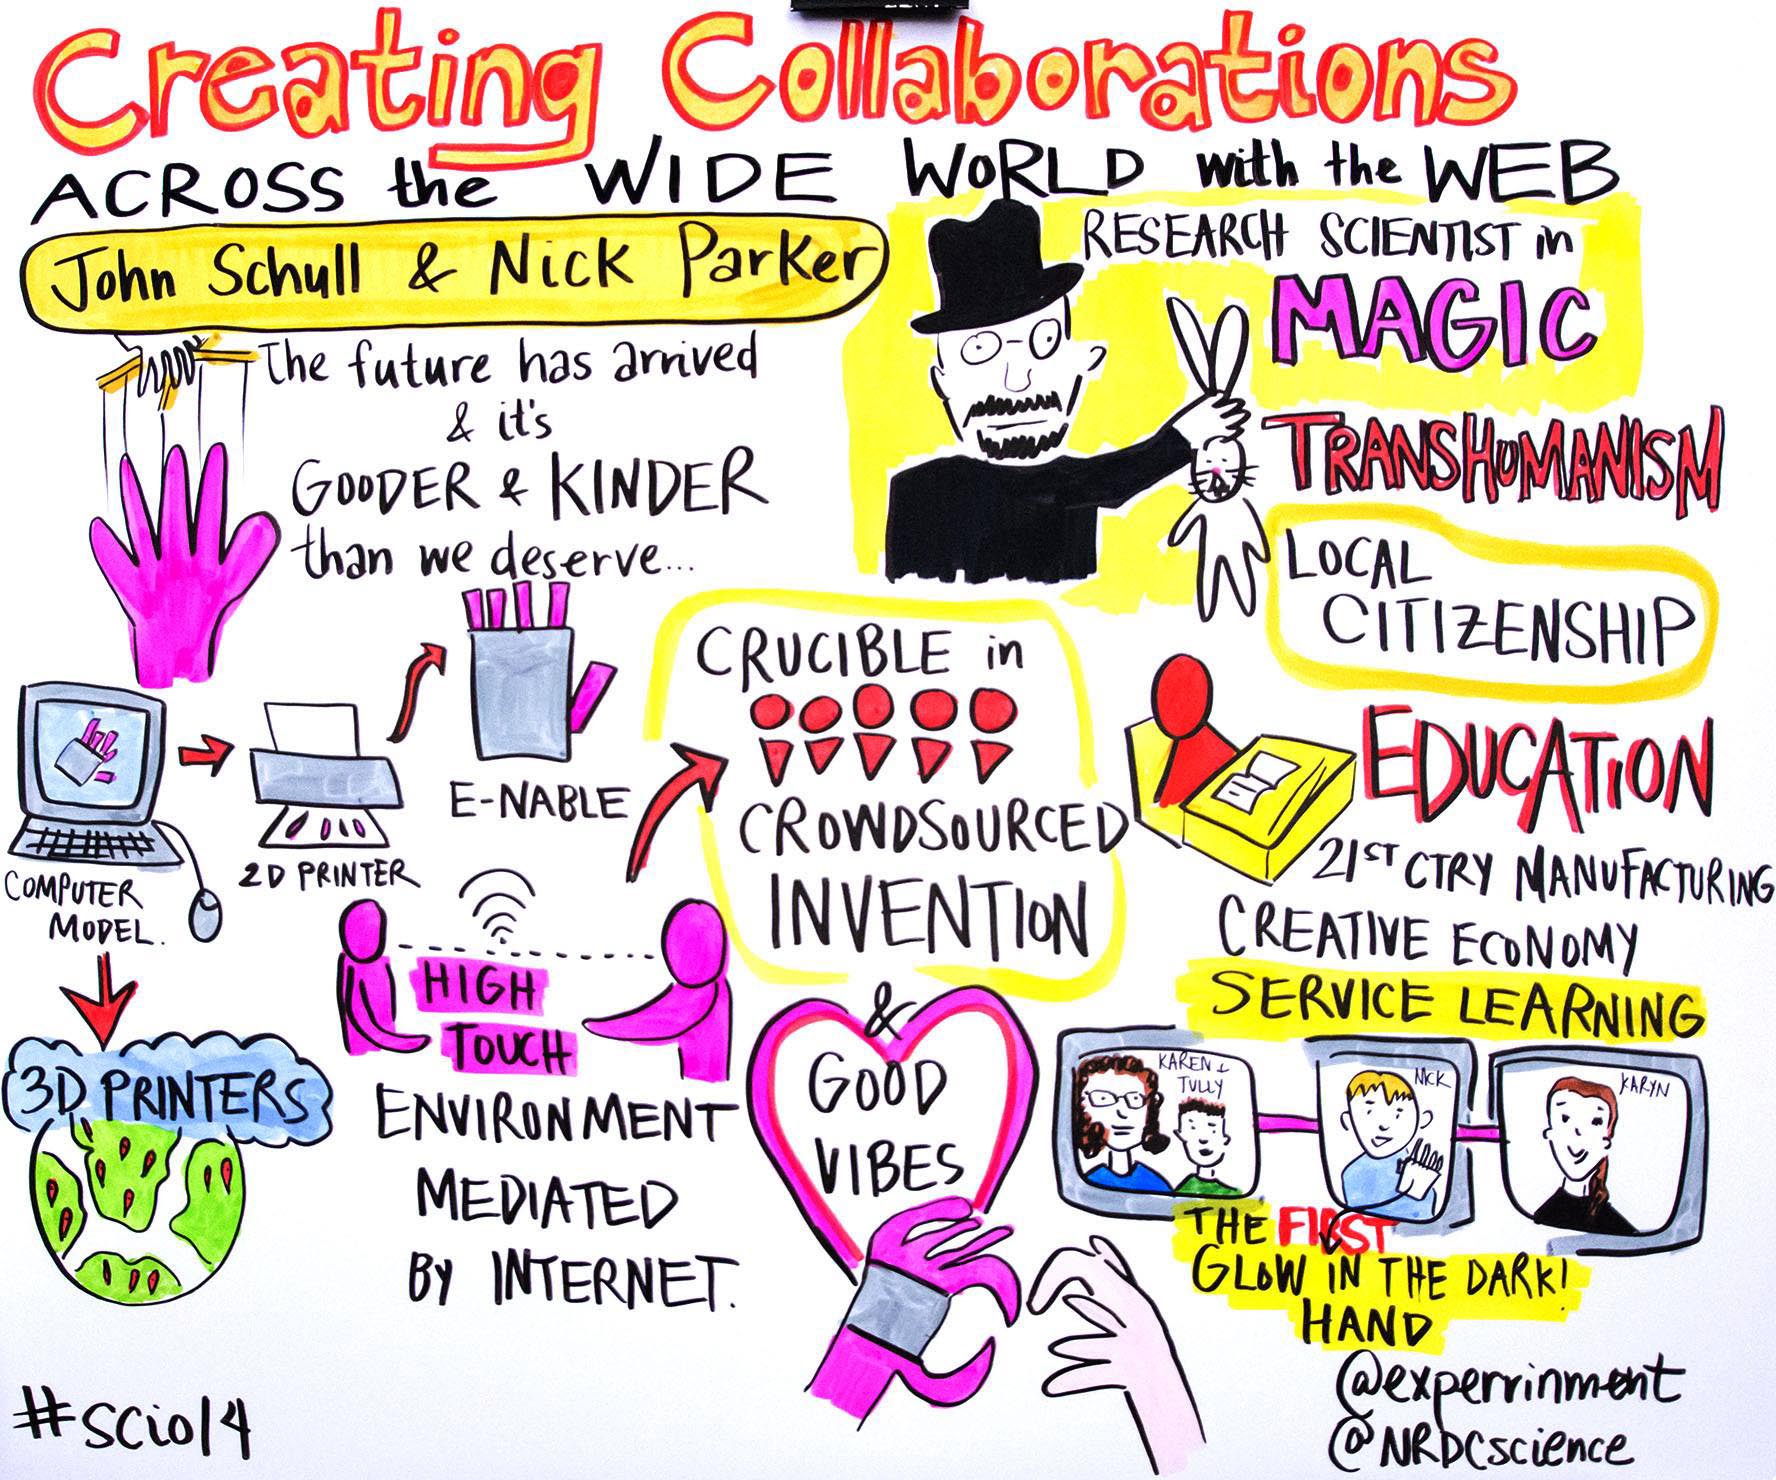 Creating Collaborations
ACROSS the WIDE WORLD with the WEB
John Schull & Nick Parker
The future has arrived
& it's
GOODER & KINDER
than we deserve...
RESEARCH SCIENTIST in
MAGIC
TRANSHUMANISM
LOCAL
CITIZENSHIP
EDUCATION
21ST CTRY MANUFACTURING
CREATIVE ECONOMY
SERVICE LEARNING
COMPUTER
MODEL.
2D PRINTER
E-NABLE
3D PRINTERS
HIGH
TOUCH
ENVIRONMENT
MEDIATED
BY INTERNET.
CRUCIBLE in
CROWDSOURCED
INVENTION
&
GOOD
VIBES
KAREN &
TULLY
NICK
KARYN
THE FIRST
GLOW IN THE DARK!
HAND
@experrinment
@NRDCscience
#scio14